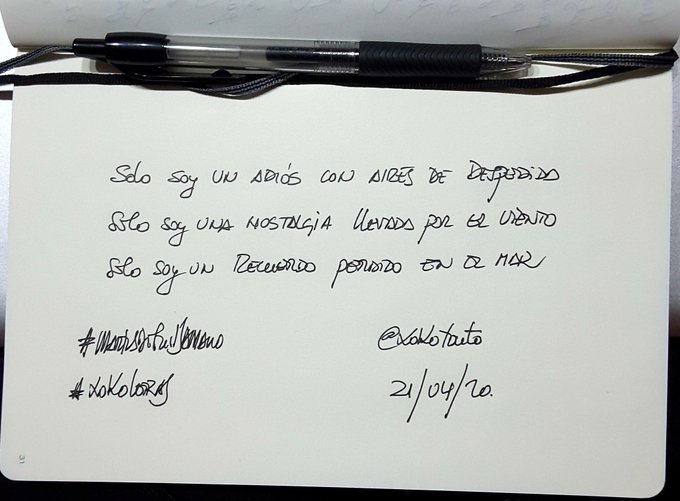 Solo soy un adiós con aires de despedida
Sólo soy una nostalgia llevada por el viento
Sólo soy un recuerdo perdido en el mar
#xokoletras
21/04/20.
31